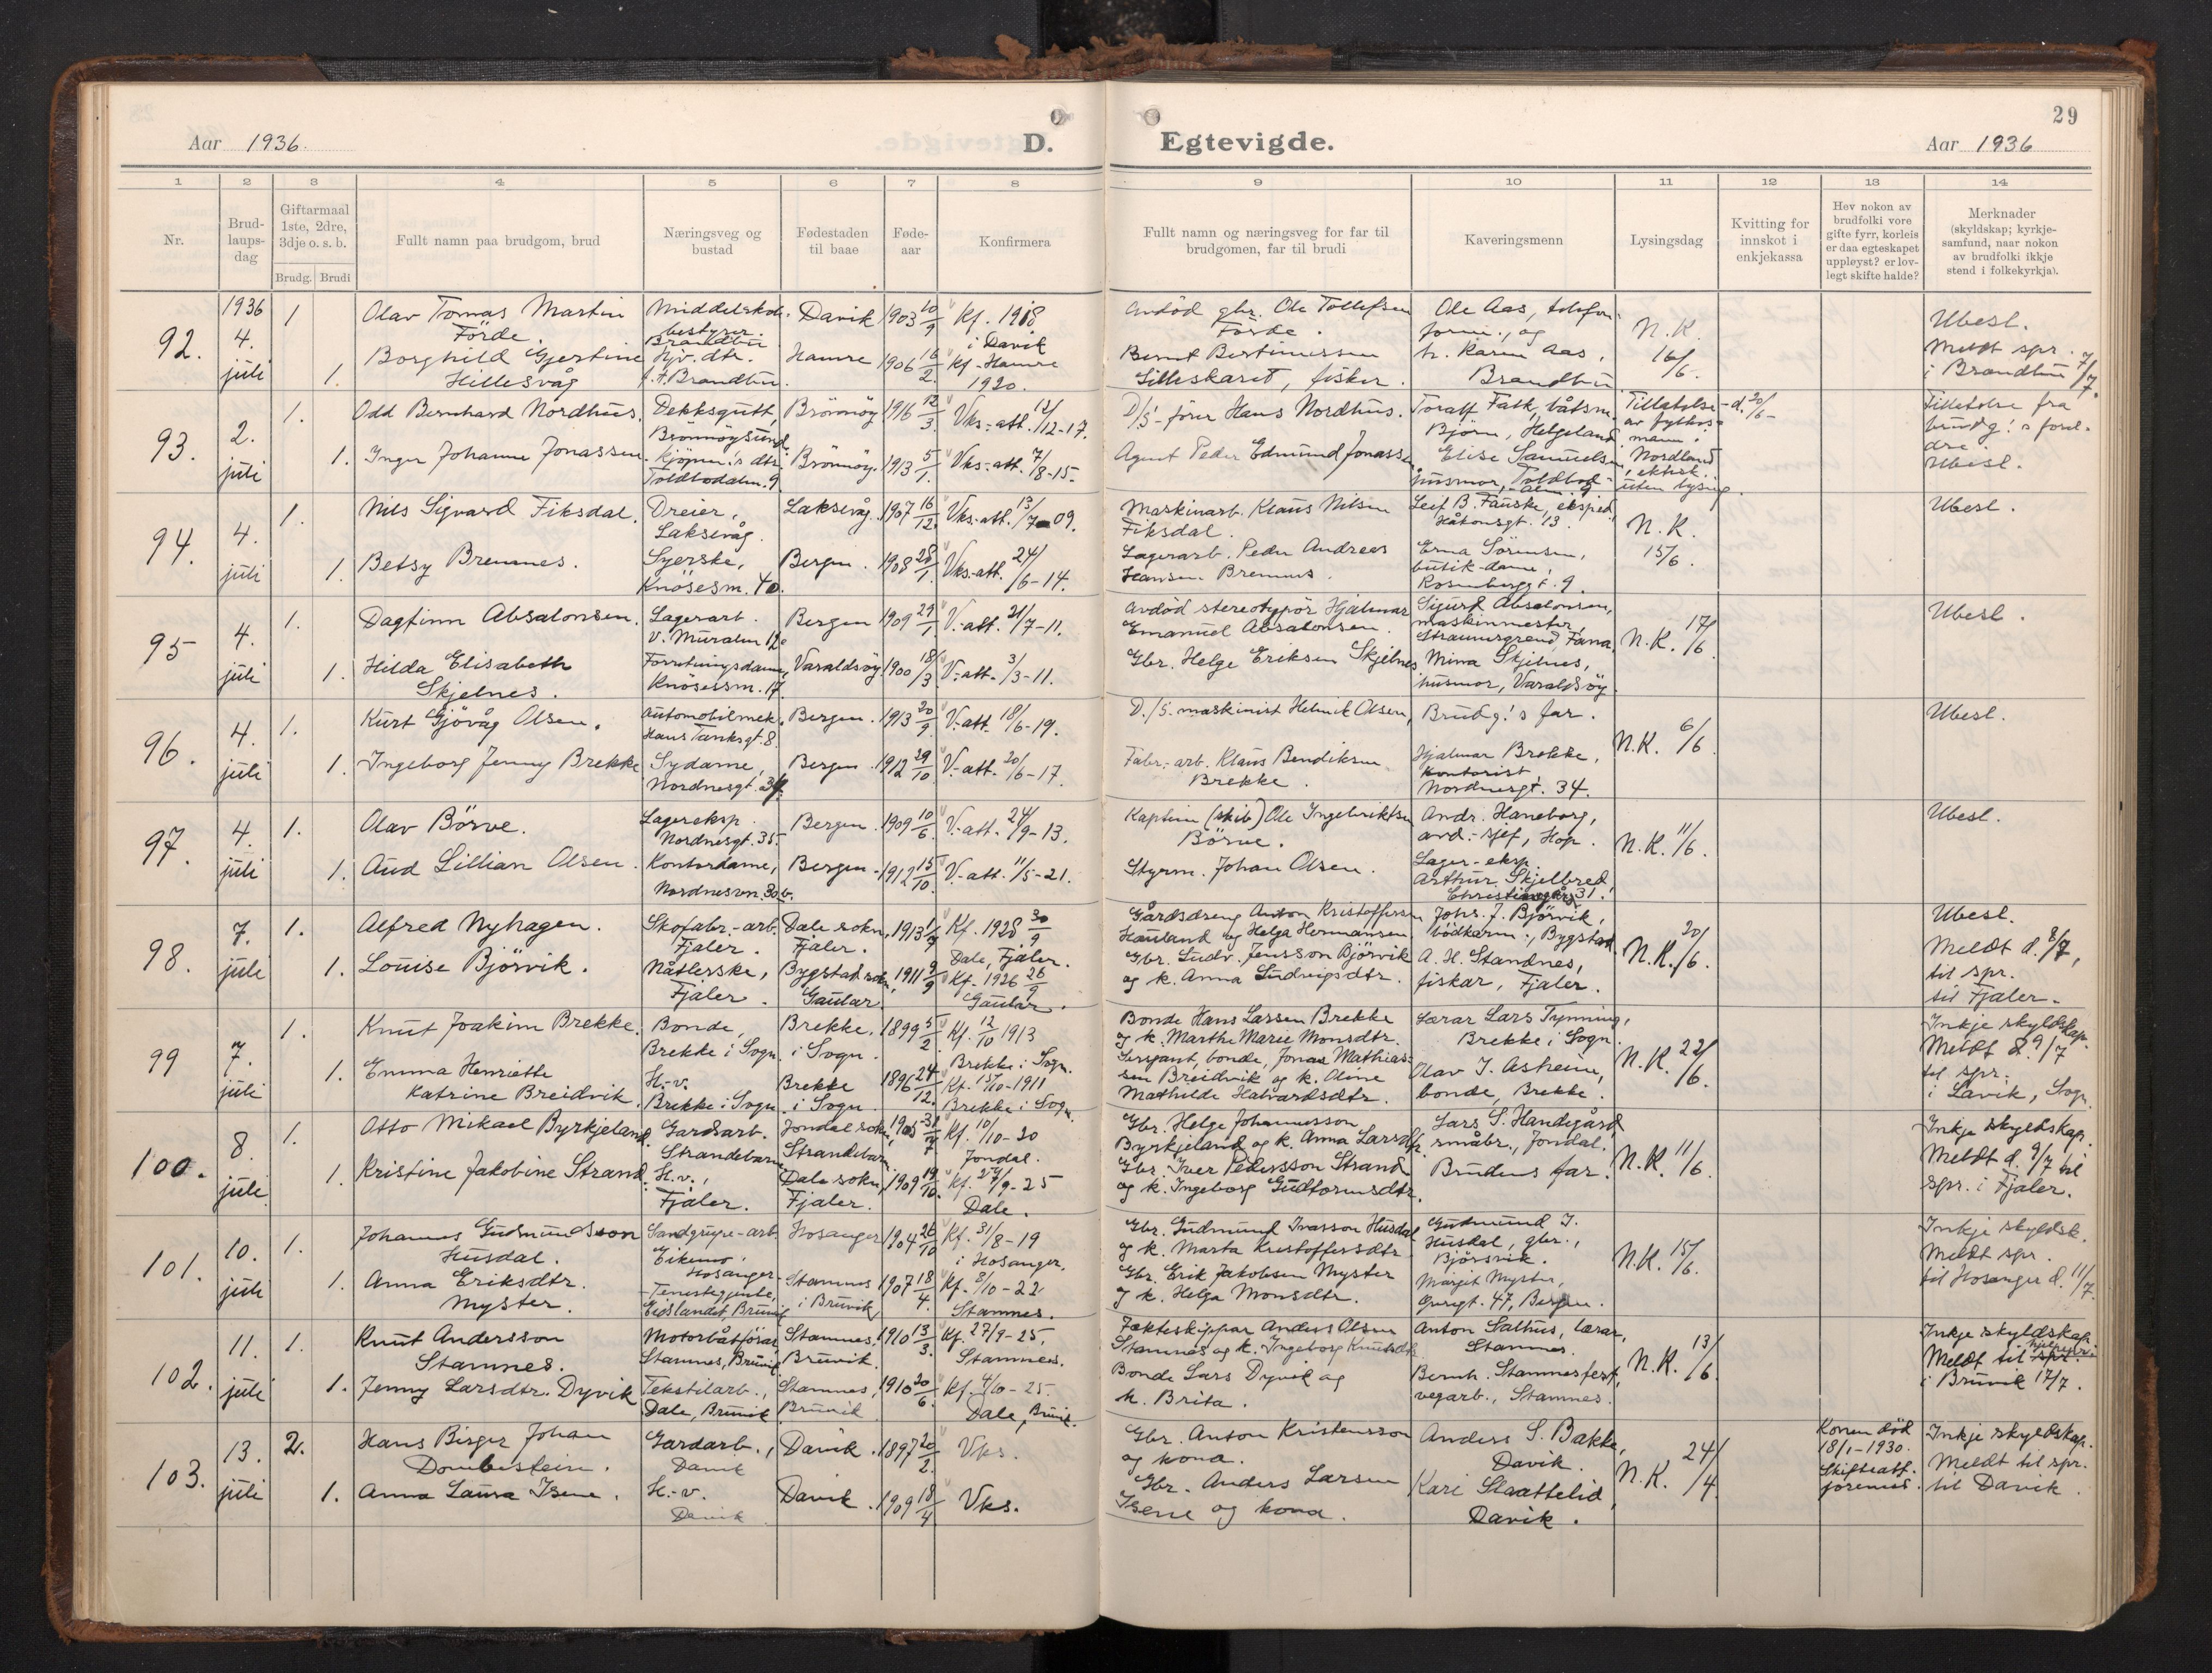 29
Aar 1936. D.
Egtevigde. Aar 1936
1 2 3 4 5 6 7 8
9 10 11 12 13 14
Nr.
Brud-
laups-
dag
Giftarmaal
1ste, 2dre,
3dje o. s. b.
Brudg. Brudi
Fullt namn paa brudgom, brud
Næringsveg og
bustad
Fødestaden
til baae
Føde-
aar
Konfirmera
Fullt namn og næringsveg for far til
brudgomen, far til brudi
Kaveringsmenn
Lysingsdag
Kvitting for
innskot i
enkjekassa
Hev nokon av
brudfolki vore
gifte fyrr, korleis
er daa egteskapet
uppløyst? er lov-
legt skifte halde?
Merknader
(skyldskap; kyrkje-
samfund, naar nokon
av brudfolki ikkje
stend i folkekyrkja).
92.
1936
4.
juli
1
Olav Tomas Martin
Förde.
Middelskole-
bestyrer.
Brandbu
Davik
1903 10/9
Kf. 1918
i Davik
1.
Borghild Gjertine
Hillesvåg
Hjv. dtr.
Brandbu.
Hamre
1906 16/2.
Kf. Hamre
1920.
Avdöd gbr. Ole Tollefsen
Förde.
Bernt Bertinussen
Lilleskaret, fisker.
Ole Aas, telefon-
form., og
fr. Karen Aas,
Brandbu
N.K.
16/6.
Ubesl.
Meldt spr.
i Brandbu 7/7.
93.
2.
juli
1.
Odd Bernhard Nordhus.
Dekksgutt,
Brönnöysund.
Brönnöy
1916 12/3.
Vks.-att. 12/12-17.
1.
Inger Johanne Jonassen
Kjöpm.'s dtr.
Toldbodalm. 9
Brönnöy.
1913 5/1.
Vks.-att. 7/8-15.
D/S-förer Hans Nordhus.
Agent Peder Edmund Jonassen
Toralf Falk, båtsm.
Björn, Helgeland.
Elise Samuelsen
husmor, Toldbod-
alm. 9
Tillatelse
av fylkes-
mann i
Nordland
, ektesk.
uten lysing.
d. 20/6-
Tillatelse fra
brudg.'s forel-
dre.
Ubesl.
94.
4.
juli
1.
Nils Sigvard Fiksdal.
Dreier,
Laksevåg.
Laksevåg.
1907 16/12.
Vks.-att. 13/7-09.
1.
Betsy Bremnes.
Syerske,
Knösesm. 40.
Bergen.
1908 28/1.
Vks.-att. 24/6-14.
Maskinarb. Klaus Nilsen
Fiksdal.
Lagerarb. Peder Andreas
Hansen Bremnes.
Leif B. Fauske, eksped.,
Håkonsgt. 13.
Erna Sörensen,
butik-dame,
Rosenbergsgt. 9.
N.K.
15/6.
Ubesl.
95
4.
juli
1.
Dagfinn Absalonsen.
Lagerarb.
v. Muralm 12c
Bergen
1909 29/1.
V.-att. 21/7-11.
1.
Hilda Elisabeth
Skjelnes.
Forretningsdame,
Knösesm. 17.
Varaldsöy
1900 18/3
V.-att. 3/3-11.
Avdöd stereotypör Hjalmar
Emanuel Absalonsen.
Gbr. Helge Eriksen Skjelnes
Sigurd Absalonsen,
maskinmester,
Straumsgrend, Fana.
Mina Skjelnes,
husmor, Varaldsöy
N.K. 17/6.
Ubesl.
96.
4.
juli
1.
Kurt Gjövåg Olsen.
Automobilmek.,
Hans Tanksgt. 8.
Bergen.
1913 20/9
V.-att. 18/6-19.
1.
Ingeborg Jenny Brekke
Sydame,
Nordnesgt. 34.
Bergen
1912 29/10.
V.-att. 20/6-17.
D./S. maskinist Helmik Olsen,
Fabr.-arb. Klaus Bendiksen
Brekke.
Brudg.'s far.
Hjalmar Brekke,
kontorist,
Nordnesgt. 34.
N.K. 6/6.
Ubesl.
97.
4.
juli
1.
Olav Börve.
Lagereksp.
Nordnesgt. 35.
Bergen.
1909 10/6.
V.-att. 24/9-13.
1.
Aud Lillian Olsen.
Kontordame,
Nordnesvn. 30b.
Bergen.
1912 15/10.
V.-att. 11/5-21.
Kaptein (skib) Ole Ingebriktsen
Börve.
Styrm. Johan Olsen.
Andr. Haneborg,
avd.-sjef, Hop.
Lager-eksp.
Arthur Skjelbred,
31.
N.K. 11/6.
Ubesl.
98.
7.
juli
1.
Alfred Nyhagen.
Skofabr.-arb.
Fjaler.
Dale sokn,
Fjaler.
1913 1/9
Kf. 1928 30/9
Dale, Fjaler.
1.
Louise Björvik.
Nåtlerske,
Fjaler.
Bygstad sokn,
Gaular
1911 9/9
Kf. 1926 26/9
Gaular.
Gårdsdreng Anton Kristoffersen
Hauland og Helga Hermansen
Gbr. Ludv. Jensson Björvik
og k. Anna Ludvigsdtr.
Johs. J. Björvik,
bödkarm., Bygstad.
A. H. Standnes,
fiskar, Fjaler.
N.K. 20/6.
Ubesl.
Meldt d. 8/7,
til spr.
til Fjaler.
99
7.
juli
1.
Knut Joakim Brekke.
Bonde,
Brekke i Sogn.
Brekke.
i Sogn.
1899 5/2.
Kf. 12/10 1913
Brekke i Sogn.
1.
Emma Henriette
Katrine Breidvik.
H.-v.
Brekke i Sogn.
Brekke
i Sogn.
1896 24/12.
Kf. 15/10-1911
Brekke i Sogn.
Bonde Hans Lassen Brekke
og k. Marthe Marie Monsdtr.
Sersjant, bonde, Jonas Mathias-
sen Breidvik og k. Oline
Mathilde Halvardsdtr.
Lærar Lars Tynning,
Brekke i Sogn.
Olav J. Asheim,
bonde, Brekke.
N.K. 22/6.
Inkje skyldskap.
Meldt d. 9/7
til spr.
i Lavik, Sogn.
100.
8.
juli
1.
Otto Mikael Byrkjeland.
Gardsarb.
Strandebarm
Jondal sokn,
Strandebarm
1905 31/7
Kf. 10/10-20
Jondal.
1.
Kristine Jakobine Strand.
H.v.,
Fjaler.
Dale sokn,
Fjaler.
1909 19/10.
Kf. 27/9-25
Dale.
Gbr. Helge Johannesson
Byrkjeland og k. Anna Larsdtr.
Gbr. Iver Pedersson Strand
og k. Ingeborg Guttormsdtr.
Lars S. Handegård,
småbr., Jondal.
Brudens far.
N.K. 11/6.
Inkje skyldskap.
Meldt d. 9/7 til
spr. i Fjaler.
101.
10.
juli
1.
Johannes Gudmundsson
Husdal.
Sandgrype-arb.
Eikemo,
Hosanger.
Hosanger
1904 26/10
Kf. 31/8-19
i Hosanger.
1.
Anna Eriksdtr.
Myster.
Tenestegjente,
Eidslandet, Bruvik
Stamnes
i Bruvik,
1907 18/4.
Kf. 8/10-22
Stamnes.
Gbr. Gudmund Ivarsson Husdal
og k. Marta Kristoffersdtr.
Gbr. Erik Jakobsen Myster
og k. Helga Monsdtr.
Gudmund I.
Husdal, gbr.,
Björsvik.
Margit Myster,
47, Bergen.
N.K. 15/6.
Inkje skyldsk.
Meldt spr.
til Hosanger d. 11/7.
102.
11.
juli
1.
Knut Andersson
Stamnes.
Motorbåtförar
Stamnes, Bruvik
Stamnes,
Bruvik.
1910 13/3.
Kf. 27/9-25.
Stamnes.
1.
Jenny Larsdtr. Dyvik
Tekstilarb.,
Dale, Bruvik
Stamnes,
Bruvik
1910 20/6.
Kf. 4/10-25.
Dale, Bruvik.
Jekteskippar Anders Olsen
Stamnes og k. Ingeborg Knutsdtr.
Bonde Lars Dyvik og
k. Brita.
Anton Salhus, lærar,
Stamnes.
Bernh. Stamnestert,
vegarb., Stamnes.
N.K. 13/6.
Inkje skyldskap.
Meldt til spr.
i Bruvik 17/7.
103.
13.
juli
2.
Hans Birger Johan
Dombestein.
Gardarb.,
Davik
Davik.
1897 20/2.
Vks.
1.
Anna Laura Isene.
H.-v.
Davik
Davik.
1909 18/4
Vks.
Gbr. Anton Kristensson
og kona.
Gbr. Anders Larsen
Isene og kona.
Anders S. Bakke,
Davik.
Kari Skattelid,
Davik.
N.K. 24/4.
Konen död
18/1-1930.
Skifteatt.
Inkje skyldskap.
Meldt til spr.
til Davik.